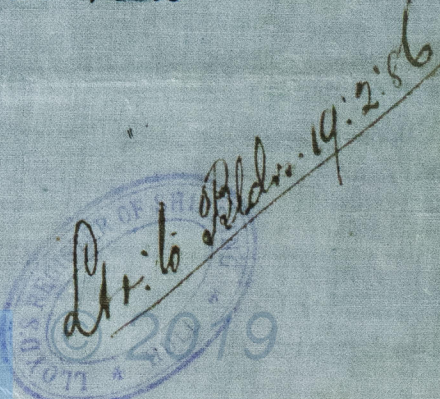 Ltr: to Bldr: 19:2:86
LLOYD'S REGISTER OF SHIPPING
© 2019